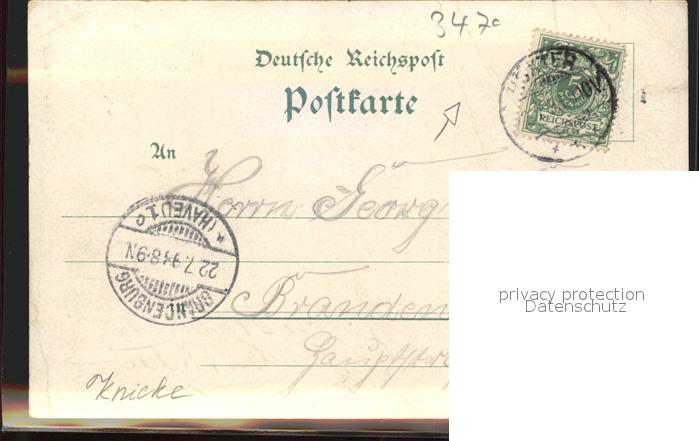 3470
Deutsche Reichspost
Postkarte
5
PFENNIG
REICHSPOST
An
Herrn Georg
Branden
Hauptstr
BRANDENBURG
22.7.93 8-9N.
* (HAVEL) 1. c
Knicke
privacy protection
Datenschutz